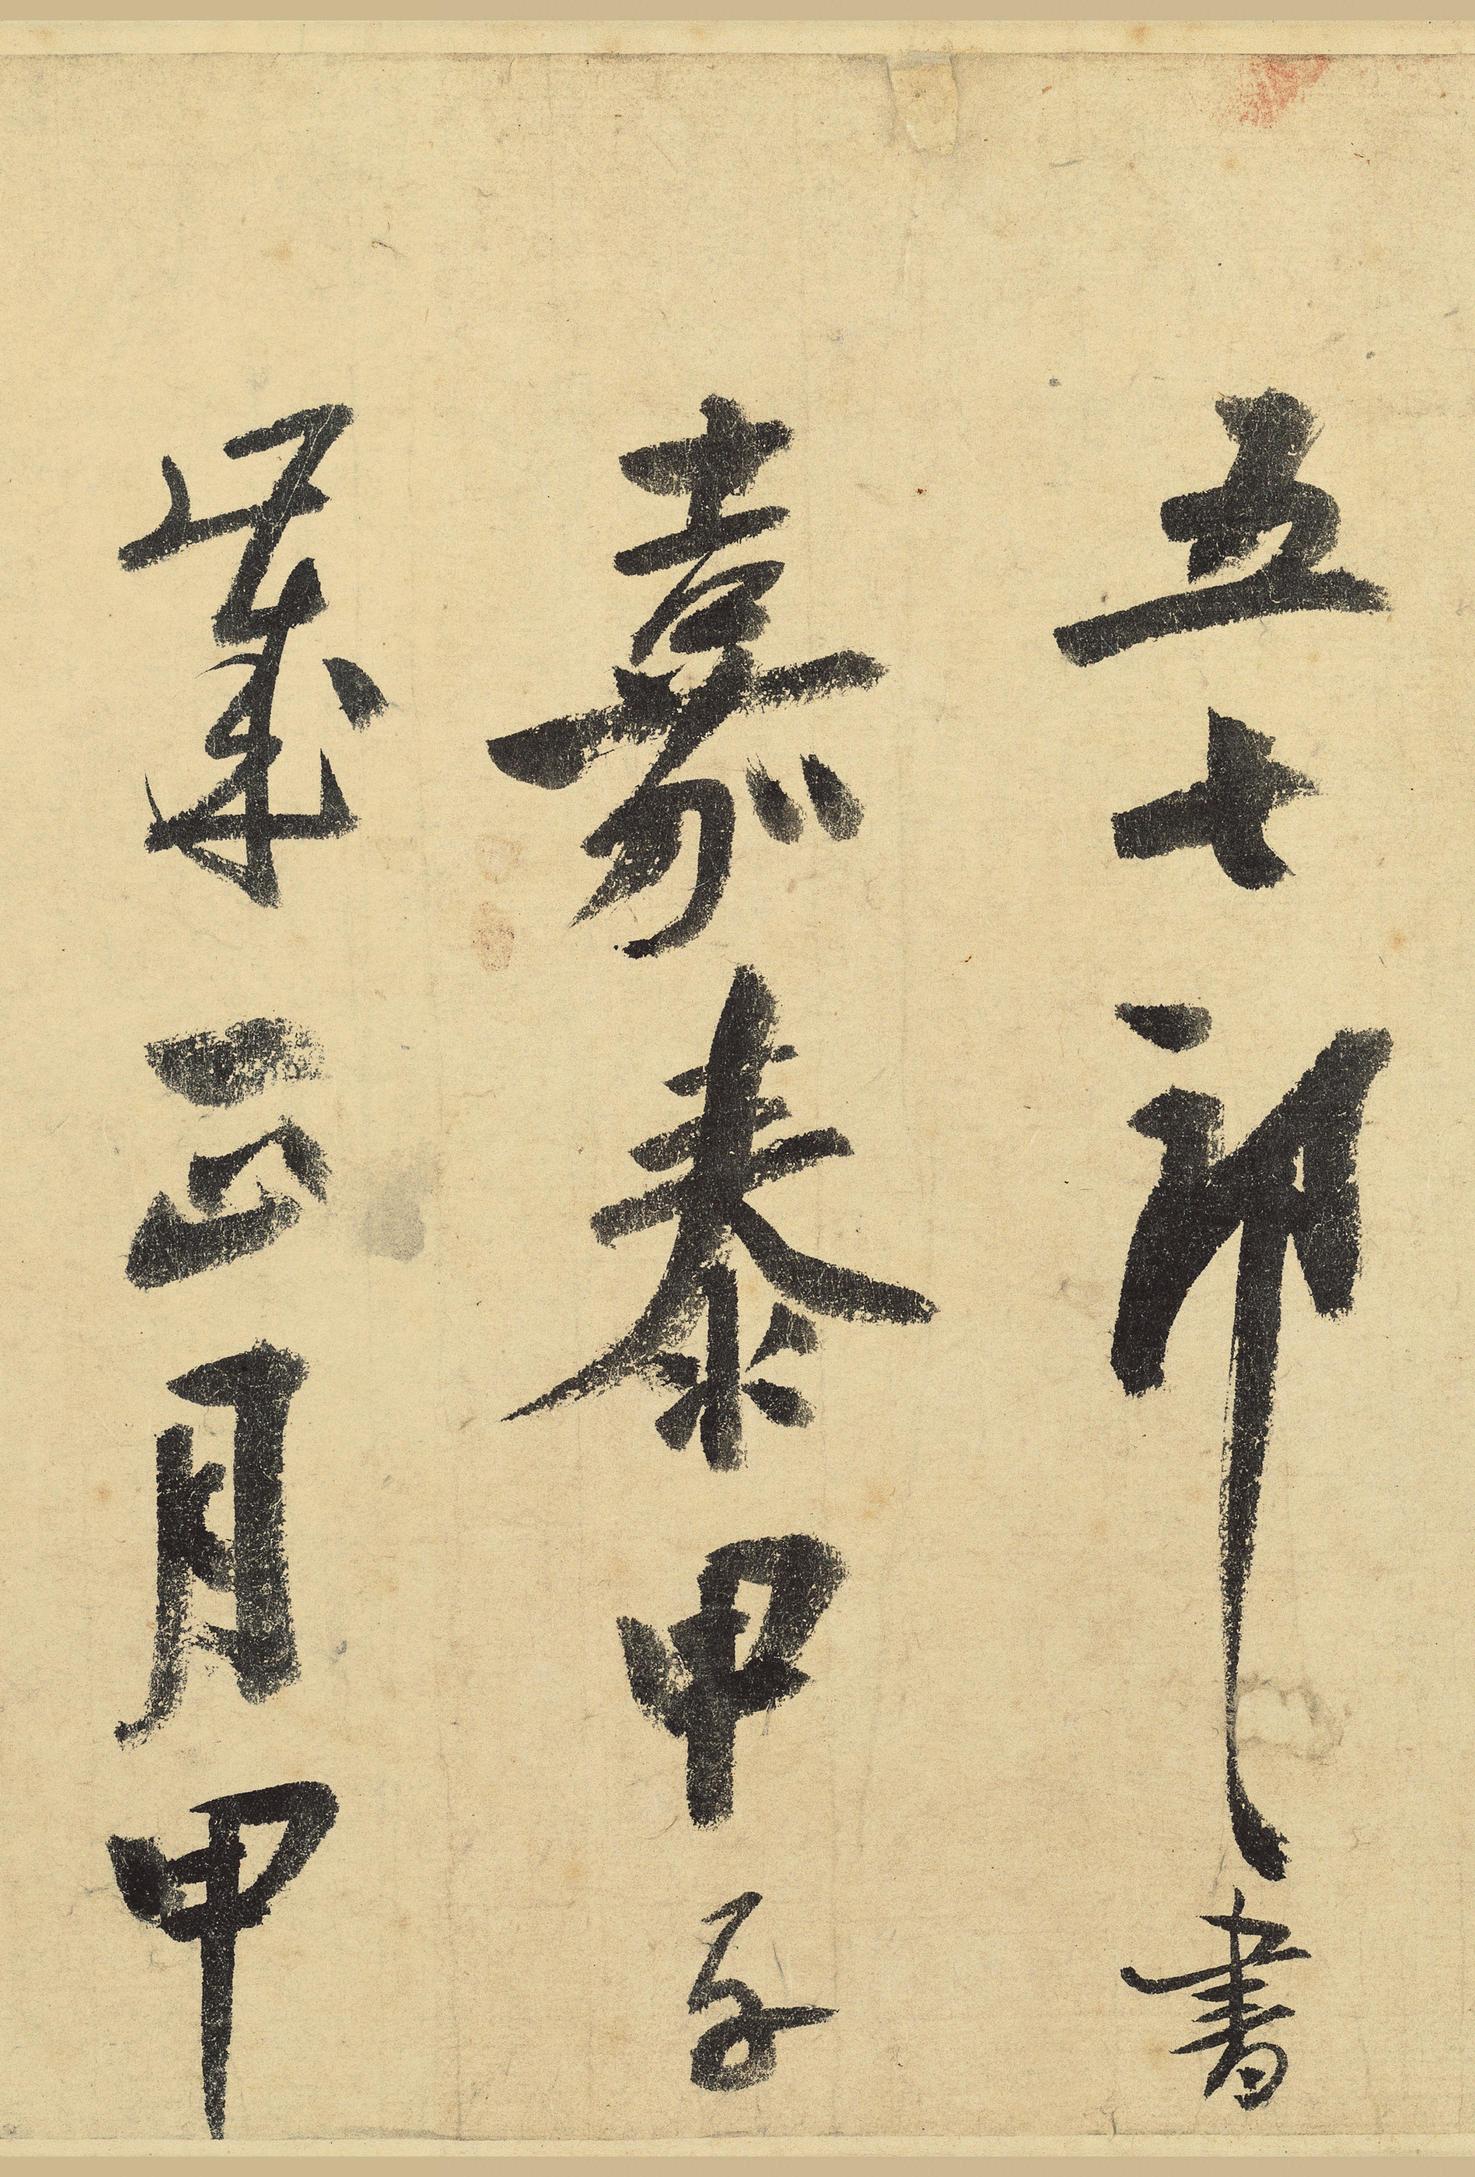 五七郎書
嘉泰甲子
歲正月甲